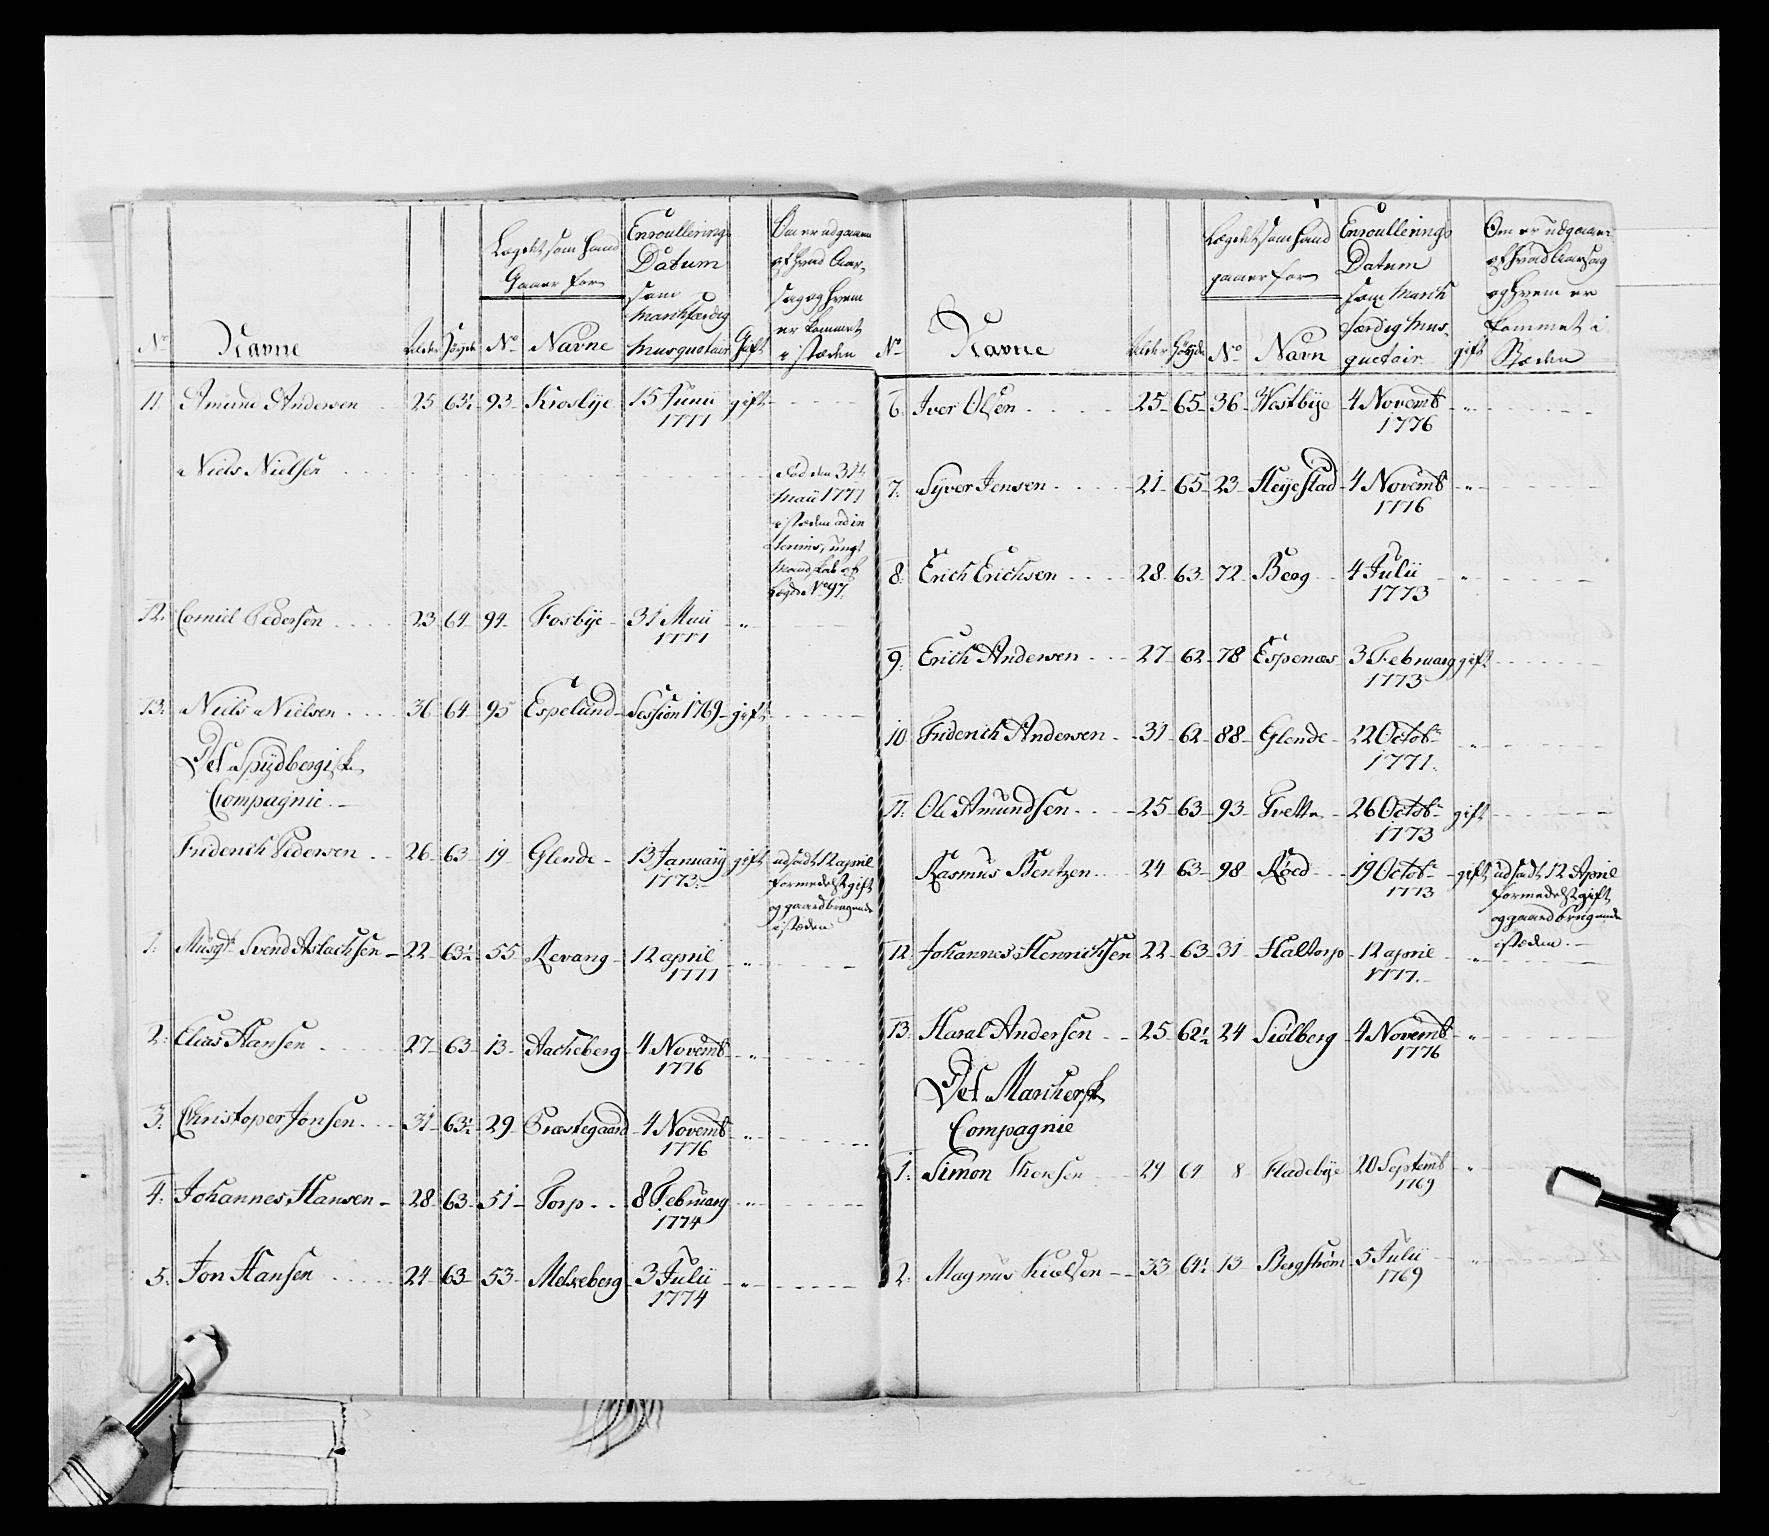 Lægdet som hand
Gaaer for
Enroullerings
Datum
som
Marchfærdig
Musquetair
Om er udgaaen
af hvad Aar-
sag og hvem
er kommet
i stæden
No Navne Alder Høyde No Navne Gift
11. Amund Andersen 25 63½ 93 Krosbye 15 Junii gift
1771
Niels Nielsen
død den 31te
Maii 1777
i stæden ad in
terims, ungt
Mand, Lab af
Lægde No 97.
12. Corniel Pedersen 23 64 94 Fosbye 31 Maii "
1771
13. Niels Nielsen 36 64 95 Espelund Session 1769 gift
Det Spydbergiske
Compagnie.
Friderich Pedersen 26 63 19 Glende 13 January gift udsadt 12 april
1773. formedelst gift
og gaardbrugende
i stæden
1. Musqt Svend Aslachsen 22 63½ 55 Revang 12 april "
1777
2. Elias Hansen 27 63 13 Aacheberg 4 Novemb "
1776
3. Christoper Jonsen 31 63½ 29 Præstegaard 4 Novemb "
1776
4. Johannes Hansen 28 63 51 Torp 8 February "
1774
5. Jon Hansen 24 63 53 Melseberg 3 Julii "
1774
Lægdet som hand
gaaer for
Enroullerings
Datum
som March
færdig Mus-
quetair
Om er udgaaen
af hvad Aarsag
og hvem er
kommet i
Stæden
No Navne Alder Høyde No Navn gift
6. Iver Olsen 25 65 36 Westbye 4 Novemb "
1776
7. Syver Jensen 21 65 23 Heyestad 4 Novemb "
1776
8. Erich Erichsen 28 63 72 Berg 4 Julii "
1773
9. Erich Andersen 27 62 78 Espenæs 3 February gift
1773
10 Friderich Andersen 31 62 88 Glende 22 Octob "
1771.
11. Ole Amundsen 25 63 93 Tvetter 26 Octob gift
1773
Rasmus Bentzen 24 63 98 Røed 19 Octob gift udsadt 12 April
1773 formedelst gift
og gaardbrugende
i stæden.
12. Johannes Henrichsen 22 63 31 Haltorp 12 april "
1777.
13. Haral Andersen 25 62½ 24 Siølberg 4 Novemb "
1776
Det Marcherske
Compagnie
1. Simon Thoresen 29 64 8 Fladebye 20 Septemb "
1769
2. Magnus Kielsen 33 64½ 13 Bergstrøm 5 Julii "
1769